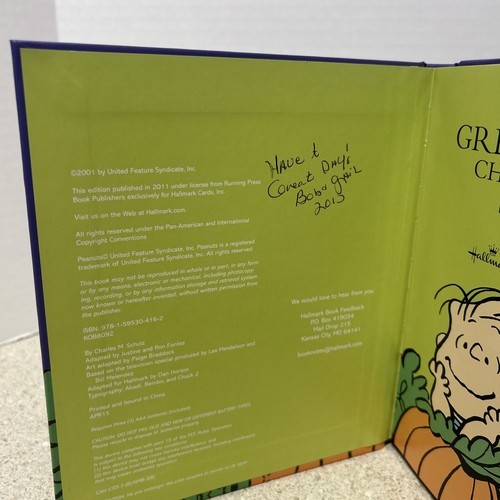 ©2001 by United Feature Syndicate, Inc.
This edition published in 2011 under license from Running Press
Book Publishers exclusively for Hallmark Cards, Inc.
Visit us on the Web at Hallmark.com.
All rights reserved under the Pan-American and International
Copyright Conventions
Peanuts© United Feature Syndicate, Inc. Peanuts is a registered
trademark of United Feature Syndicate, Inc. All rights reserved.
This book may not be reproduced in whole or in part, in any form
or by any means, electronic or mechanical, including photocopy-
ing, recording, or by any information storage and retrieval system
now known or hereafter invented, without written permission from
the publisher.
ISBN: 978-1-59530-416-2
KOB8092
By Charles M. Schulz
Adapted by Justine and Ron Fontes
Art adapted by Paige Braddock
Based on the television special produced by Lee Mendelson and
Bill Melendez
Adapted for Hallmark by Dan Horson
Typography by Abadi, Bembo, and Chuck 2
Printed and bound in China
APR15
Requires three (3) AAA batteries (included).
CAUTION: DO NOT MIX OLD AND NEW OR DIFFERENT BATTERY TYPES.
HAVE t
Great DAY!
Bob & Gail
2015
We would love to hear from you.
Hallmark Book Feedback
PO Box 419034
Mail Drop 215
Kansas City, MO 64141
booknotes@hallmark.com
GRE
CH
Hallm